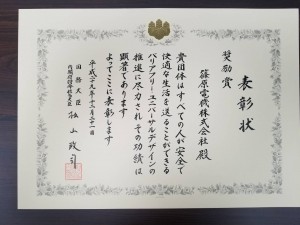 表彰状
奨励賞
篠原電機株式会社 殿
貴団体はすべての人が安全で
快適な生活を送ることができる
バリアフリー・ユニバーサルデザインの
推進に尽力されその功績は
顕著であります
よってここに表彰します
平成二十九年十二月二十一日
国務大臣
松山政司